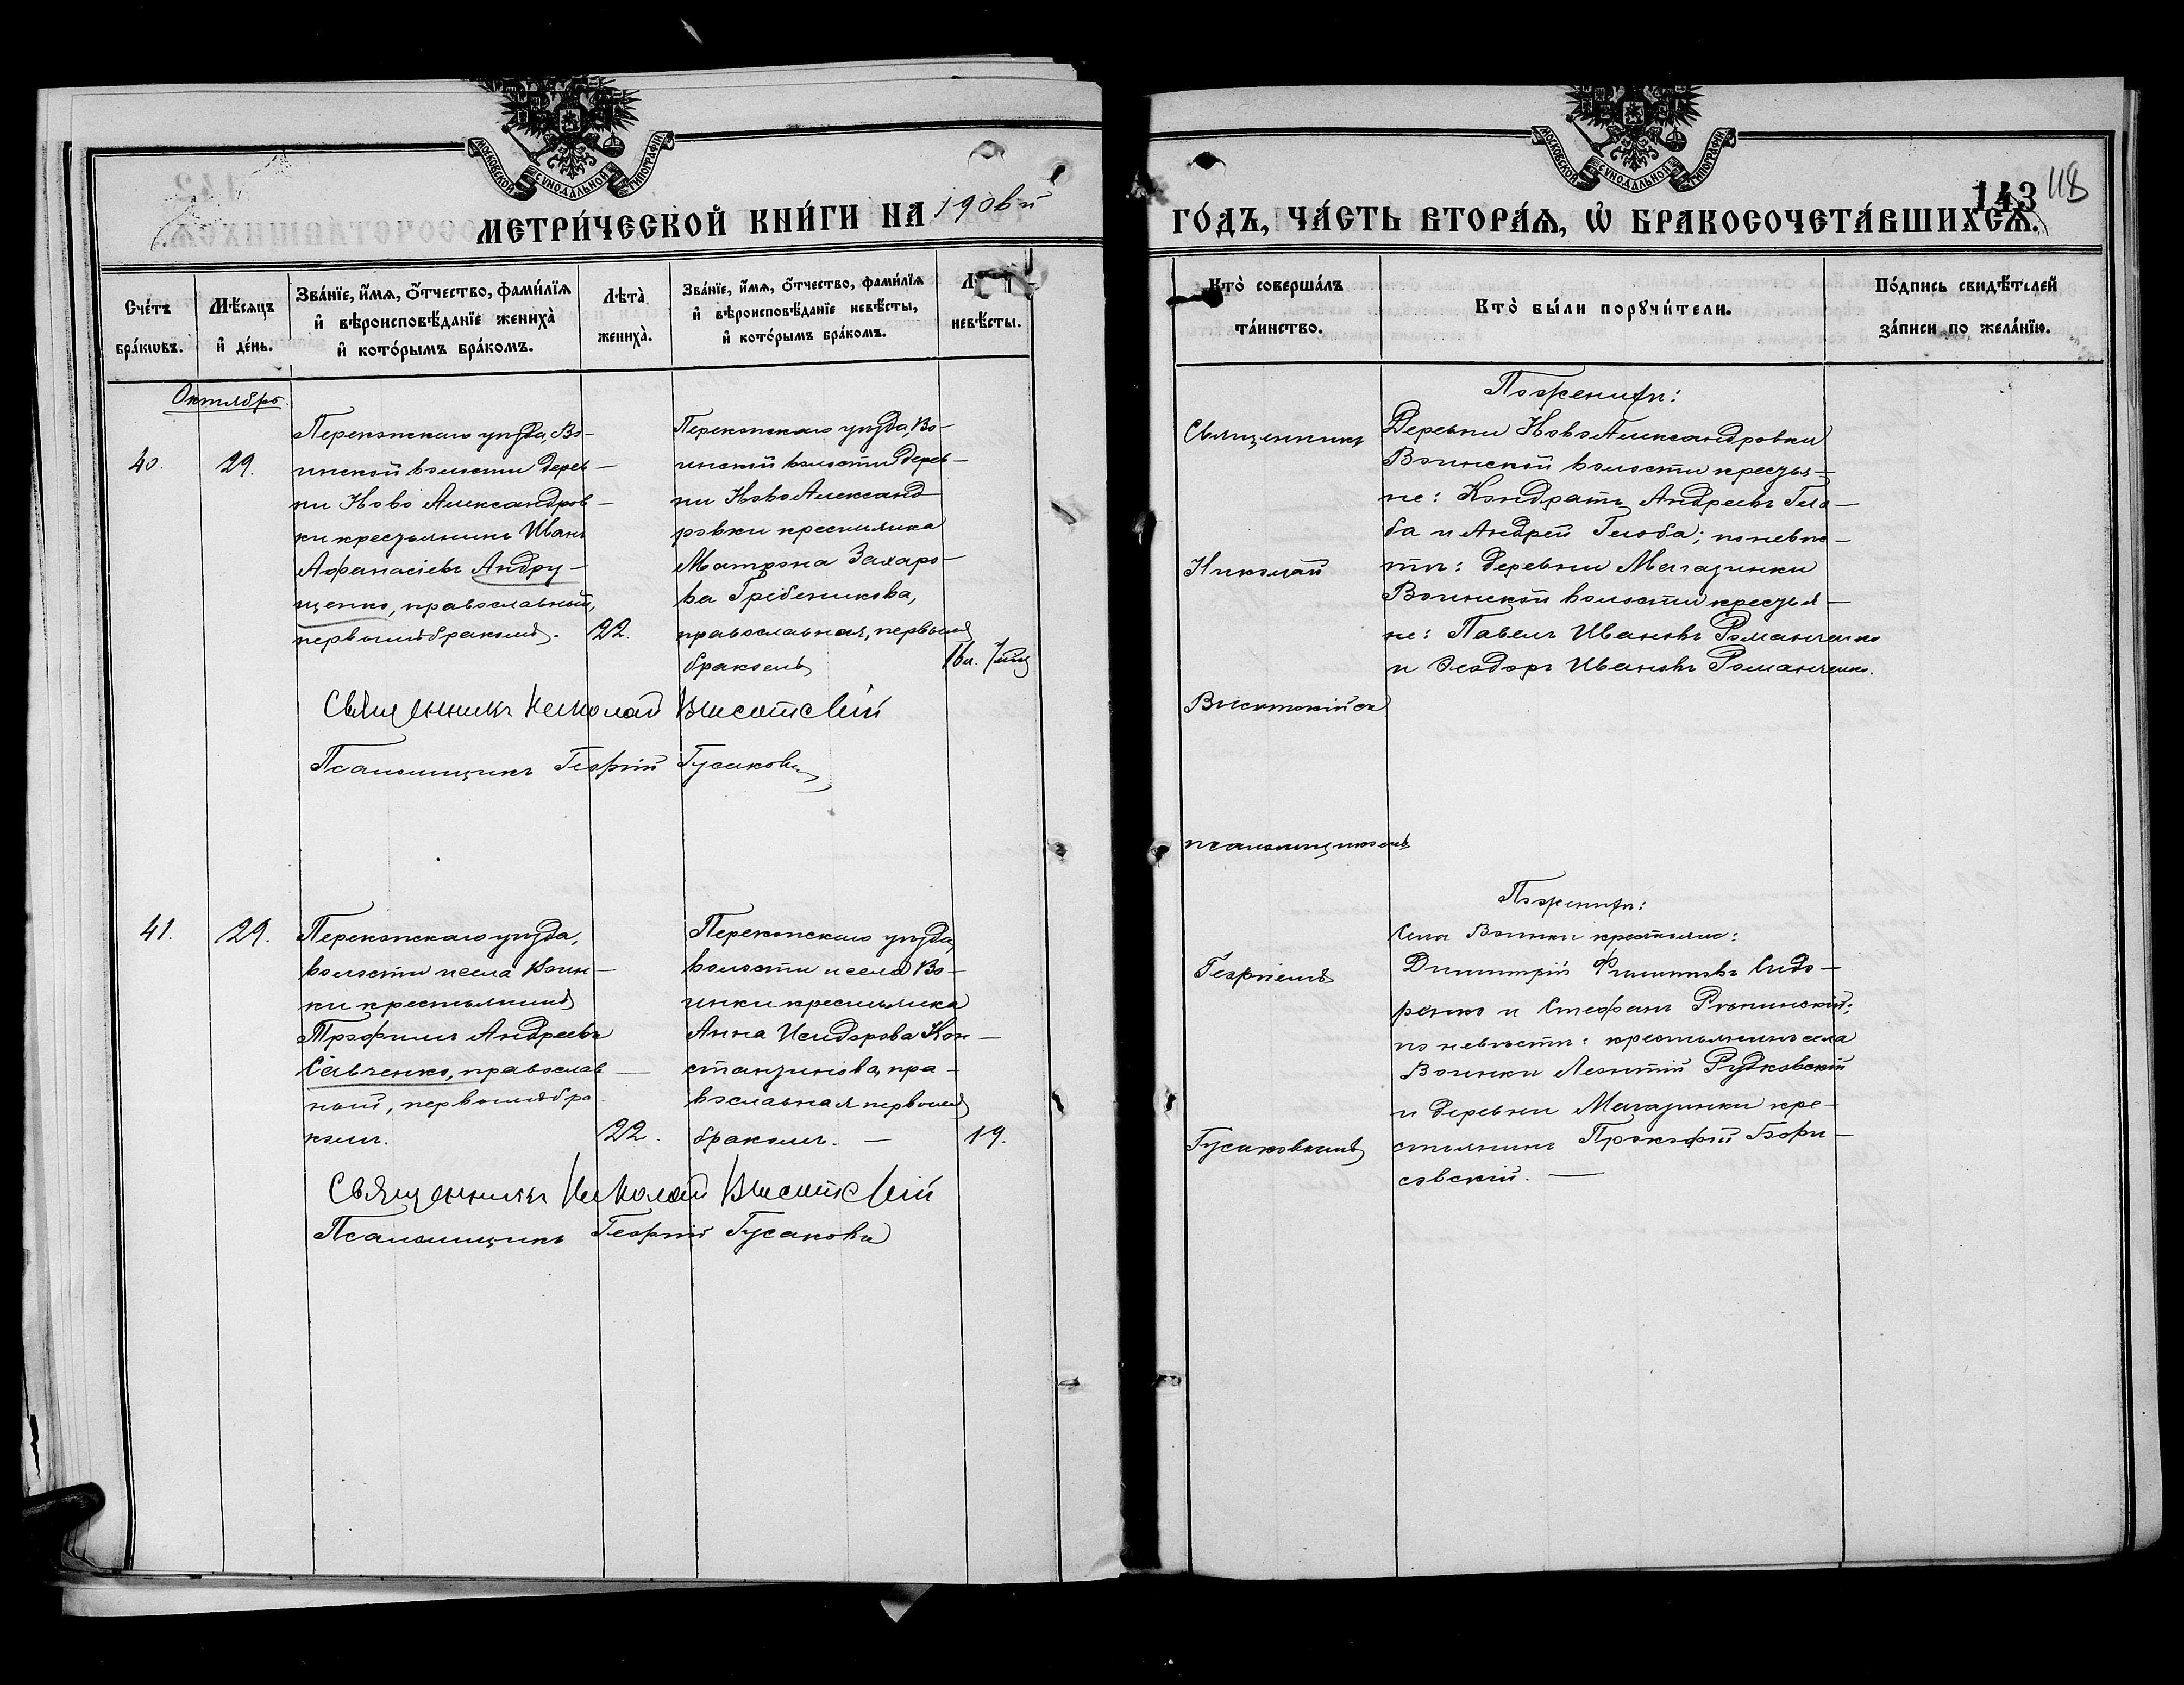 МОСКОВСКОЙ СѴНОДАЛЬНОЙ ТИПОГРАФІИ
МЕТРИ́ЧЕСКОЙ КНИ́ГИ НА 1906й
Счéтъ бра́кωвъ.
Мѣ́сяцъ и҆ де́нь.
Зва́нїе, и҆́мѧ, ѻ҆́тчество, фами́лїѧ
и҆ вѣроисповѣ́данїе жениха̀
и҆ кото́рымъ бра́комъ.
Лѣта̀ жениха̀.
Зва́нїе, и҆́мѧ, ѻ҆́тчество, фами́лїѧ
и҆ вѣроисповѣ́данїе невѣ́сты,
и҆ кото́рымъ бра́комъ.
невѣ́сты.
Октябрь.
40.
29.
Перекопскаго уѣзда, Во-
инской волости дерев-
ни Ново Александров-
ки крестьянинъ Иванъ
Афанасіевъ Андру-
щенко, православный,
первымъ бракомъ.
22.
Перекопскаго уѣзда, Во-
инской волости дерев-
ни Ново Александ-
ровки крестьянка
Матрона Захаро-
ва Гребеникова,
православная, первымъ
бракомъ
16л. 7мц
Священникъ Николай Высотскій
Псаломщикъ Георгій Гусаковъ
41.
29.
Перекопскаго уѣзда,
волости и села Воин-
ки крестьянинъ
Трофимъ Андреевъ
Савченко, православ-
ный, первымъ бра-
комъ.
22.
Перекопскаго уѣзда,
волости и села Во-
инки крестьянка
Анна Исидорова Кон-
станзинова, пра-
вославная первымъ
бракомъ. —
19.
Священникъ Николай Высотскій
Псаломщикъ Георгій Гусаковъ
МОСКОВСКОЙ СѴНОДАЛЬНОЙ ТИПОГРАФІИ
143
118
ГО́ДЪ, ЧА́СТЬ ВТОРА́Ѧ, Ѡ҆ БРАКОСОЧЕТА́ВШИХСѦ.
Кто̀ соверша́лъ та́инство.
Кто̀ бы́ли порꙋчи́тели.
По́дпись свидѣ́телей за́писи по жела́нїю.
Священникъ
Николай
Высотскій съ
псаломщикомъ
Георгіемъ
Гусаковымъ
По женихѣ:
Деревни Ново Александровки
Воинской волости крестья-
не: Кондратъ Андреевъ Гело-
ба и Андрей Гелоба; по невѣ-
стѣ: деревни Магазинки
Воинской волости крестья-
не: Павелъ Ивановъ Романченко
и Ѳеодоръ Ивановъ Романченко.
По женихѣ:
Села Воинки крестьяне:
Димитрій Филипповъ Сидо-
ренко и Стефанъ Ропинскій;
по невѣстѣ: крестьянинъ села
Воинки Леонтій Рудковскій
и деревни Магазинки кре-
стьянинъ Прокофій Бори-
совскій. —